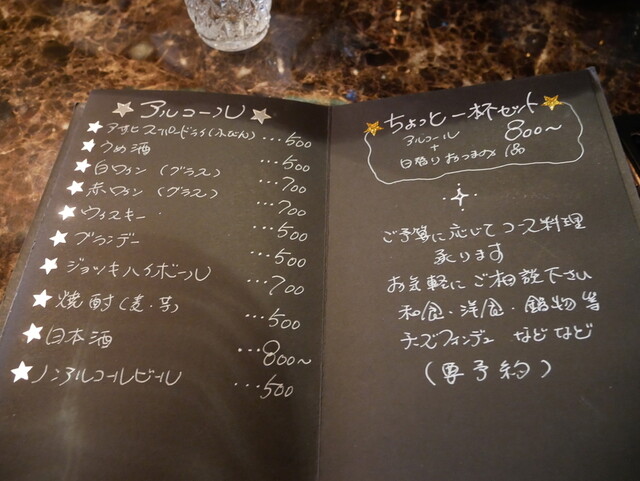 アルコール
アサヒスーパードライ(小びん) …500
うめ酒 …500
白ワイン (グラス) …700
赤ワイン (グラス) …700
ウィスキー …500
ブランデー …500
ジョッキハイボール …700
焼酎 (麦・芋) …500
日本酒 …800～
ノンアルコールビール …500
ちょっと一杯セット
アルコール 800～
+
日替りおつまみ 1品
ご予算に応じてコース料理
承ります
お気軽にご相談下さい
和食・洋食・鍋物等
チーズフォンデュ などなど
(要予約)